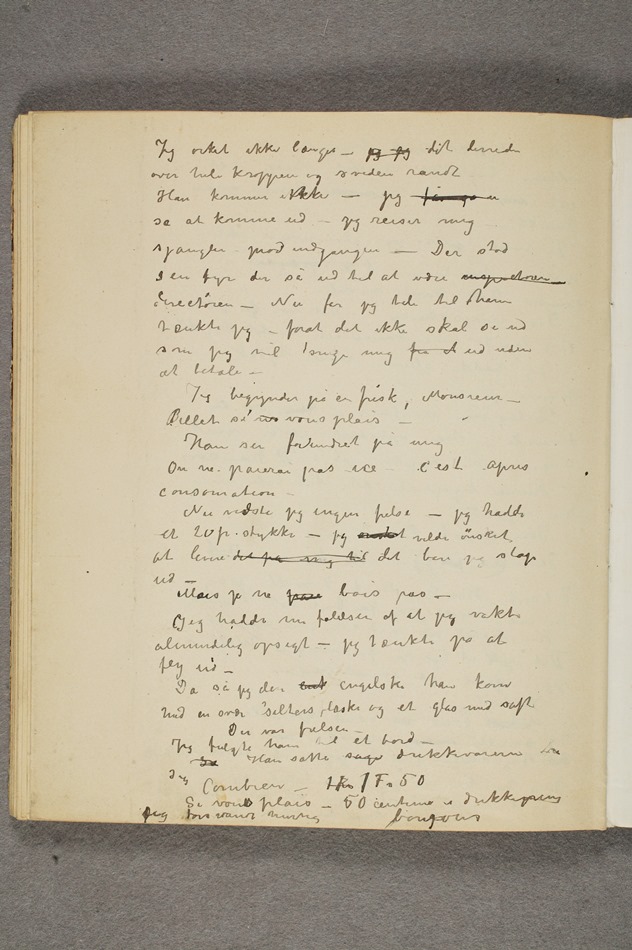 Jeg orket ikke længe – jeg jeg dit
over hele kroppen og sveden randt
Han kommer ikke – jeg
se at komme ud – jeg reiser mig
sjangler mod indgangen – Der stod
en fyr der så ud til at være inspectøren
directøren – Nu får jeg tale til ham
tænkte jeg – forat det ikke skal se ud
som jeg vil snige mig for at ud uden
at betale –
Jeg begynder på en frisk, Monsieur –
Billet s'il vous plais –
Han ser forundret på mig
On ne paierai pas ice – c'est apres
consomation –
Nu vidste jeg ingen frelse – jeg hadde
et 20 fr. stykke – jeg ønsket vilde ønsket
at levere det fra mig til det bare jeg slap
ud –
Mais je ne bois pas –
Jeg hadde en følelsen af at jeg vakte
almindelig opsigt – jeg tænkte på at
fly ud –
Da så jeg den engelske han kom
med en svær selters flaske og et glas med saft
Der var frelsen –
Jeg fulgte ham til et bord –
Han satte drikkevarerne
Jeg Combien – 1 F. 50
Si vous plais – 50 centime i drikkepenge
Jeg forsvandt hurtig bonjours